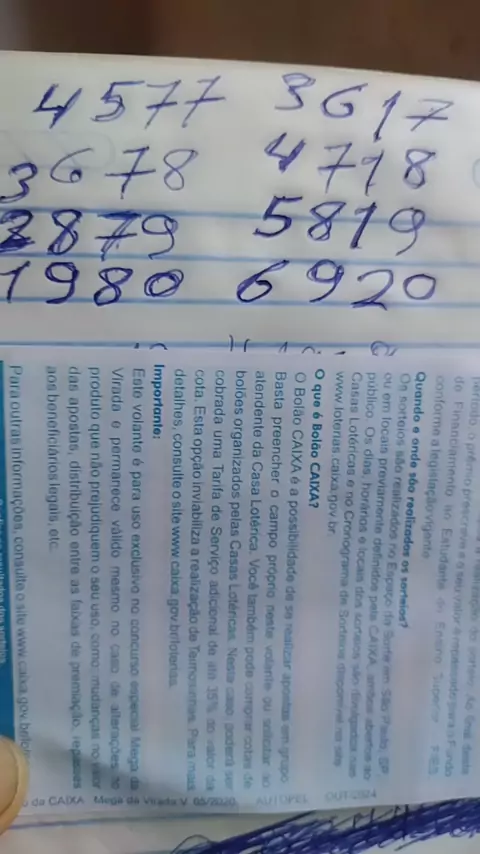 4577 3617
3678 4718
2879 5819
1980 6920
conforme a legislação vigente.
Quando e onde são realizados os sorteios?
Os sorteios são realizados no Espaço da Sorte em São Paulo, SP
ou em locais previamente definidos pela CAIXA, ambos abertos ao
público. Os dias, horários e locais dos sorteios são divulgados nas
Casas Lotéricas e no Cronograma de Sorteios disponível no site
www.loterias.caixa.gov.br.
O que é Bolão CAIXA?
O Bolão CAIXA é a possibilidade de se realizar apostas em grupo.
Basta preencher o campo próprio neste volante ou solicitar ao
atendente da Casa Lotérica. Você também pode comprar cotas de
bolões organizados pelas Casas Lotéricas. Neste caso, poderá ser
cobrada uma Tarifa de Serviço adicional de até 35% do valor da
cota. Esta opção inviabiliza a realização de Teimosinhas. Para mais
detalhes, consulte o site www.caixa.gov.br/loterias.
Importante:
Este volante é para uso exclusivo no concurso especial Mega da
Virada e permanece válido mesmo no caso de alterações no
produto que não prejudiquem o seu uso, como: mudanças no valor
das apostas, distribuição entre as faixas de premiação, repasses
aos beneficiários legais, etc.
Para outras informações, consulte o site www.caixa.gov.br/
da CAIXA Mega da Virada V. 05/2020 AUTOPEL OUT/2024